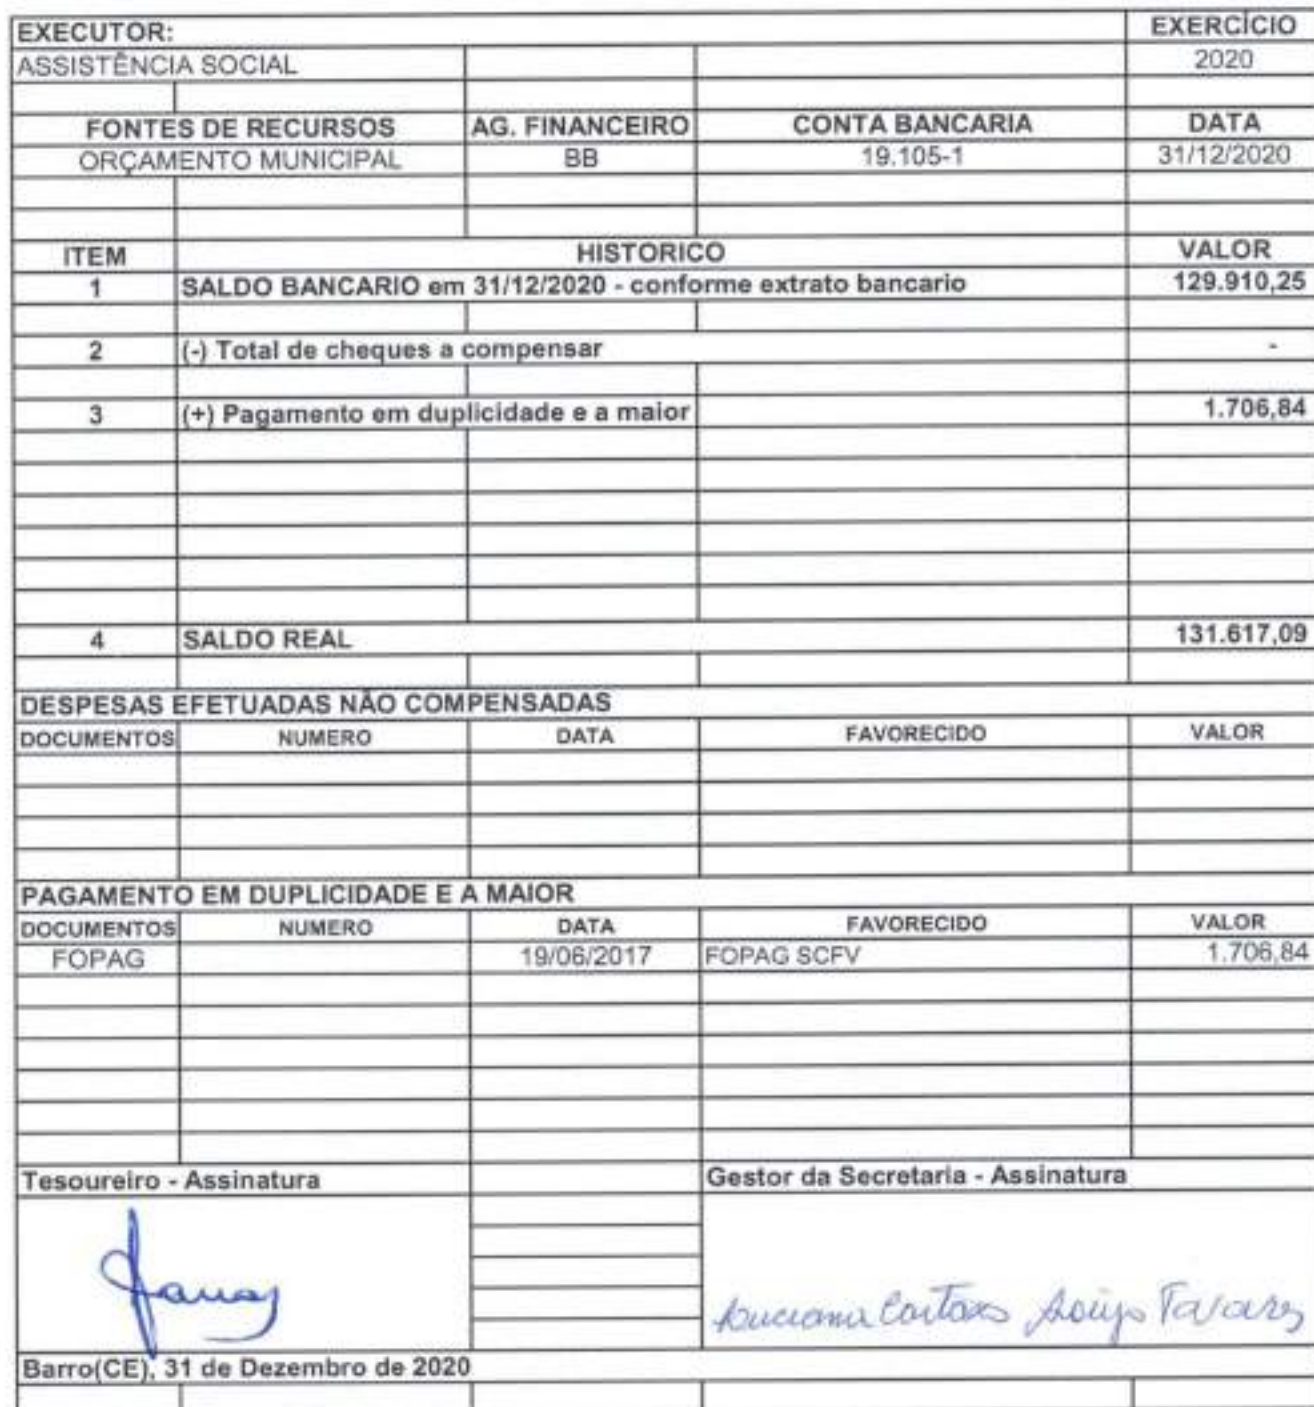 EXECUTOR: EXERCÍCIO
ASSISTÊNCIA SOCIAL 2020
FONTES DE RECURSOS AG. FINANCEIRO CONTA BANCARIA DATA
ORÇAMENTO MUNICIPAL BB 19.105-1 31/12/2020
ITEM HISTORICO VALOR
1 SALDO BANCARIO em 31/12/2020 - conforme extrato bancario 129.910,25
2 (-) Total de cheques a compensar -
3 (+) Pagamento em duplicidade e a maior 1.706,84
4 SALDO REAL 131.617,09
DESPESAS EFETUADAS NÃO COMPENSADAS
DOCUMENTOS NUMERO DATA FAVORECIDO VALOR
PAGAMENTO EM DUPLICIDADE E A MAIOR
DOCUMENTOS NUMERO DATA FAVORECIDO VALOR
FOPAG 19/06/2017 FOPAG SCFV 1.706,84
Tesoureiro - Assinatura Gestor da Secretaria - Assinatura
Luciana Tavares
Barro(CE), 31 de Dezembro de 2020